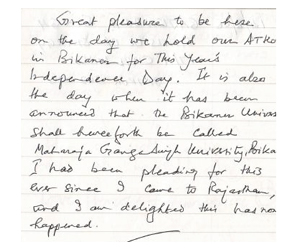 Great pleasure to be here
on the day we hold our AtHo
in Bikaner for this year's
Independence Day. It is also
the day when it has been
announced that the Bikaner Univers
shall henceforth be called
Maharaja Ganga Singh University, Bika
I had been pleading for this
ever since I came to Rajasthan,
and I am delighted this has now
happened.